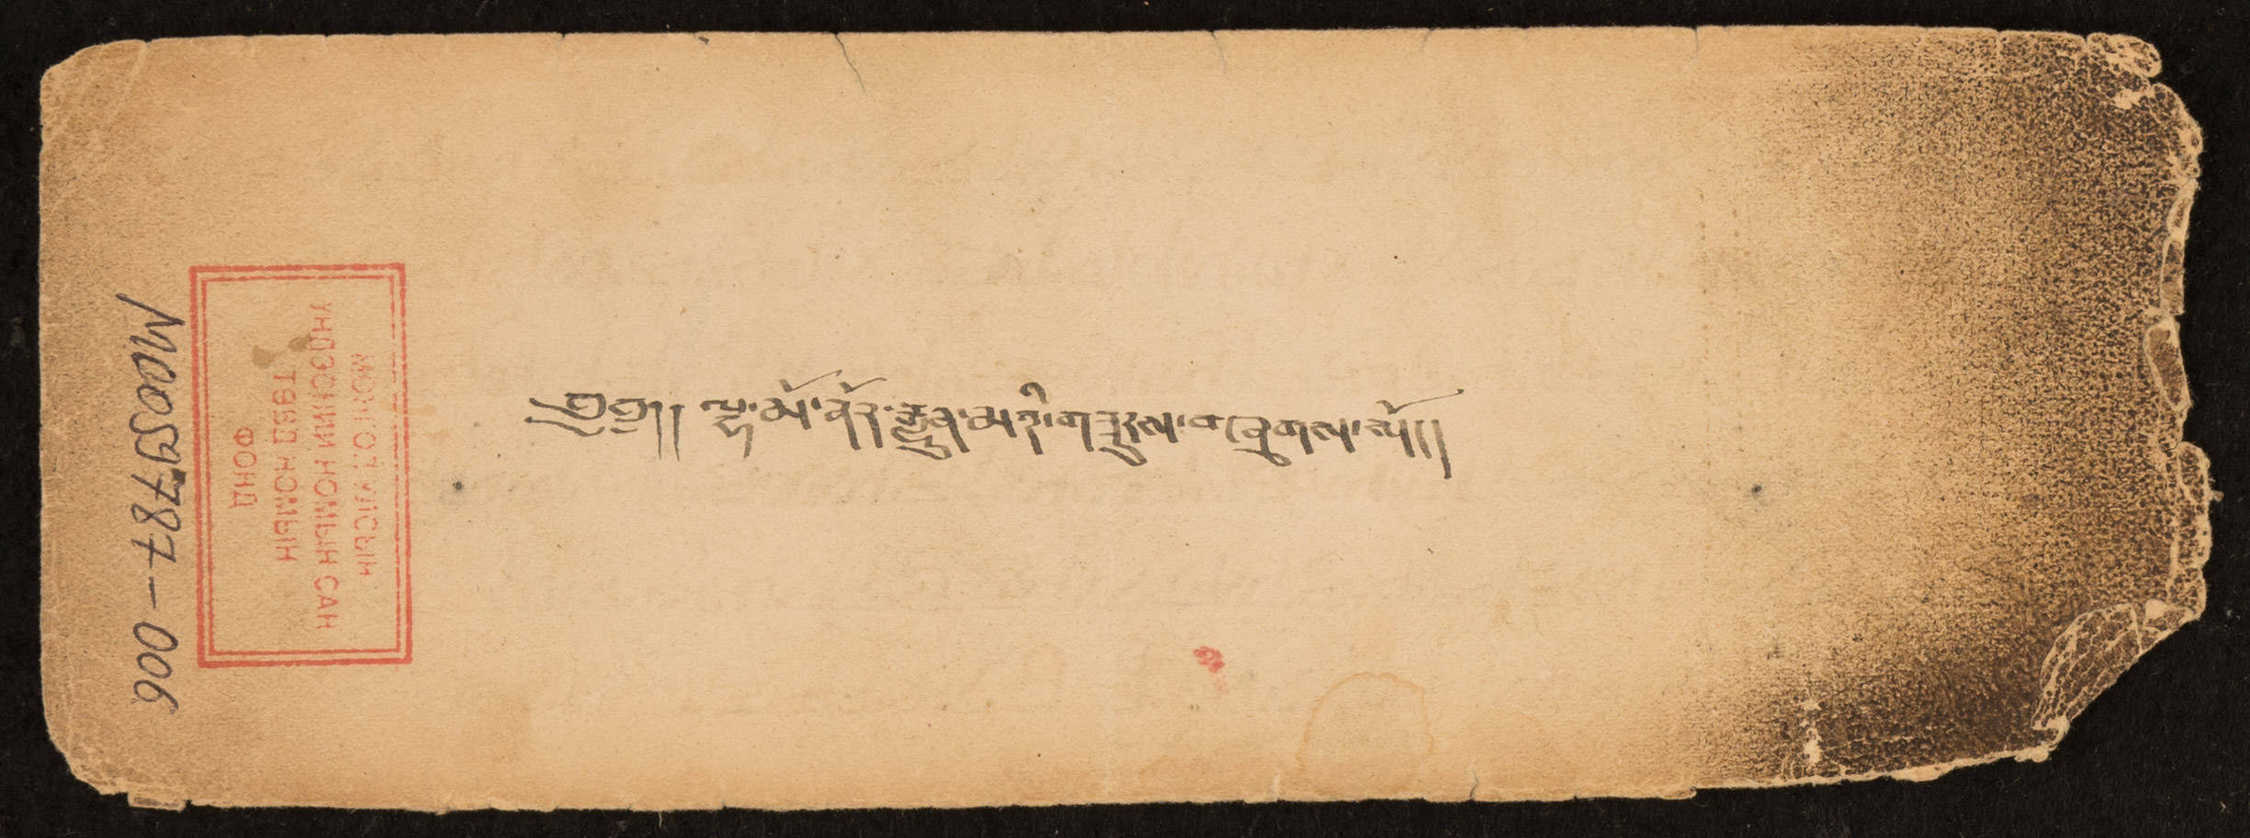 ༄༅།། ལྷ་མོ་ནོར་རྒྱུན་མའི་གཟུངས་བཞུགས་སོ།།
M0059787-006
МОНГОЛ УЛСЫН
ҮНДЭСНИЙ НОМЫН САН
ТӨВД НОМЫН
ФОНД